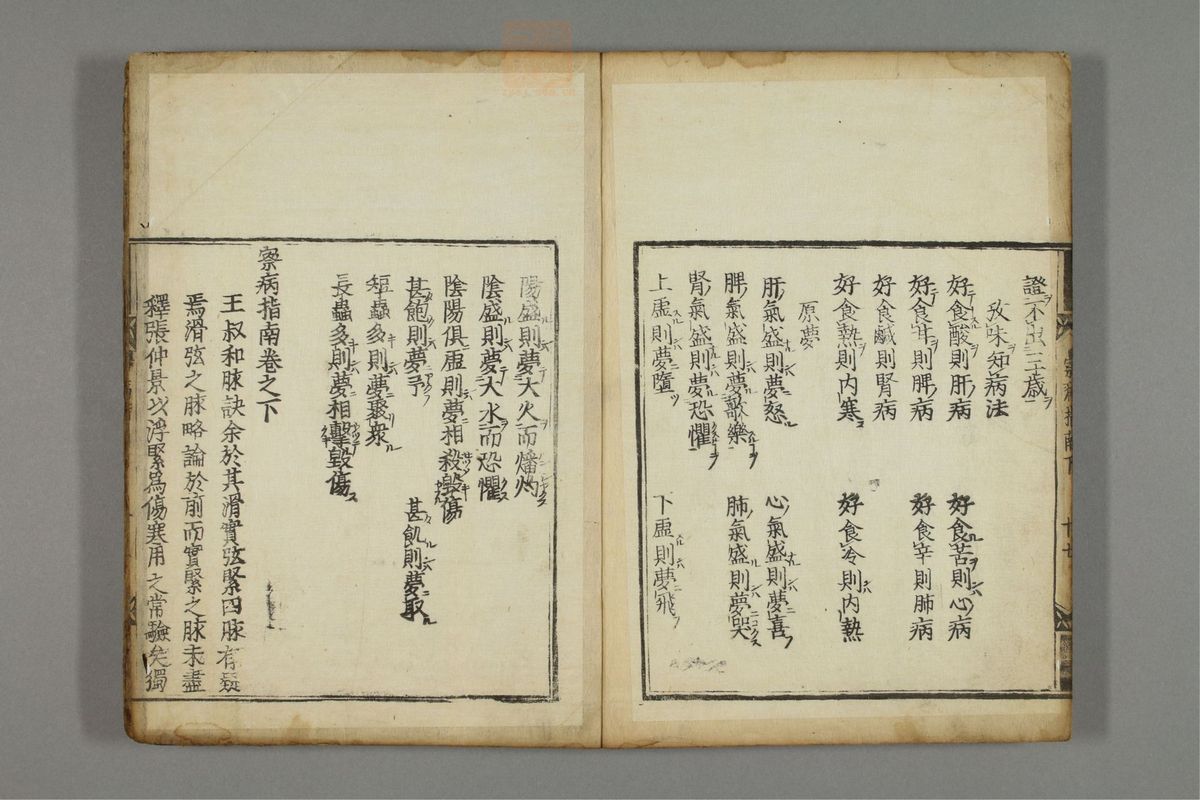 證不出三十歲
攷味知病法
好食酸則肝病　好食苦則心病
好食甘則脾病　好食辛則肺病
好食鹹則腎病
好食熱則內寒　好食冷則內熱
原夢
肝氣盛則夢怒　心氣盛則夢喜
脾氣盛則夢歌樂　肺氣盛則夢哭
腎氣盛則夢恐懼
上虛則夢墮　下虛則夢飛
陽盛則夢大火而燔灼
陰盛則夢大水而恐懼
陰陽俱盛則夢相殺毀傷
甚飽則夢予　甚飢則夢取
短蟲多則夢聚衆
長蟲多則夢相擊毀傷
察病指南卷之下
王叔和脉訣余於其滑實弦緊四脉有疑
焉滑弦之脉略論於前而實緊之脉未盡
釋張仲景以浮緊爲傷寒用之常驗矣獨